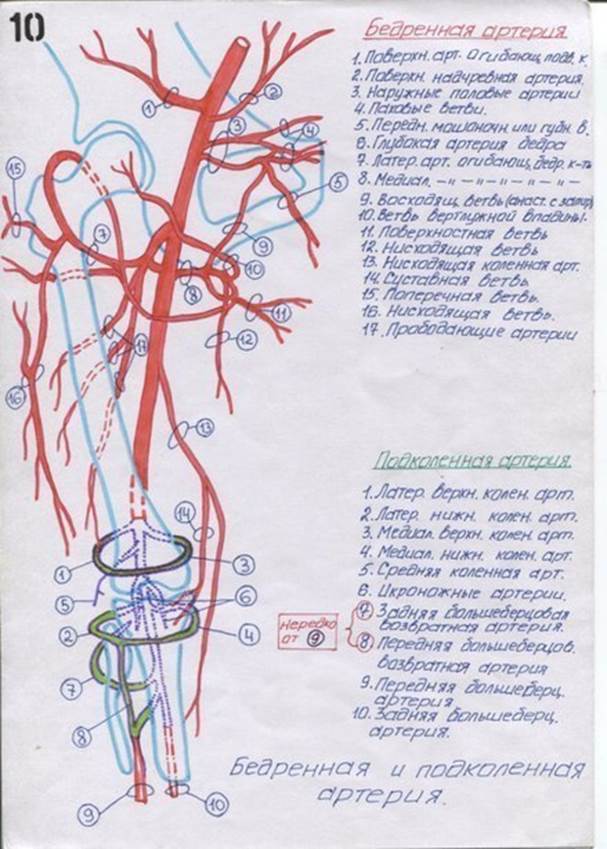 10
Бедренная артерия.
1. Поверхн. арт. огибающ. подв. к.
2. Поверхн. надчревная артерия.
3. Наружные половые артерии
4. Паховые ветви.
5. Передн. мошоночн. или губн. в.
6. Глубокая артерия бедра
7. Латер. арт. огибающ. бедр. к-ть
8. Медиал. —"—"—"—"—"—
9. Восходящ. ветвь (анаст. с запир.)
10. Ветвь вертлужной впадины.
11. Поверхностная ветвь
12. Нисходящая ветвь
13. Нисходящая коленная арт.
14. Суставная ветвь
15. Поперечная ветвь.
16. Нисходящая ветвь.
17. Прободающие артерии
1
2
3
4
5
15
7
9
10
8
11
12
17
16
13
14
Подколенная артерия.
1. Латер. верхн. колен. арт.
2. Латер. нижн. колен. арт.
3. Медиал. верхн. колен. арт.
4. Медиал. нижн. колен. арт.
5. Средняя коленная арт.
6. Икроножные артерии.
7 Задняя большеберцовая
возвратная артерия.
8 Передняя большеберцов.
возвратная артерия
9. Передняя большеберц.
артерия
10. Задняя большеберц.
артерия.
нередко
от 9
1
3
5
6
2
4
7
8
9
10
Бедренная и подколенная
артерия.